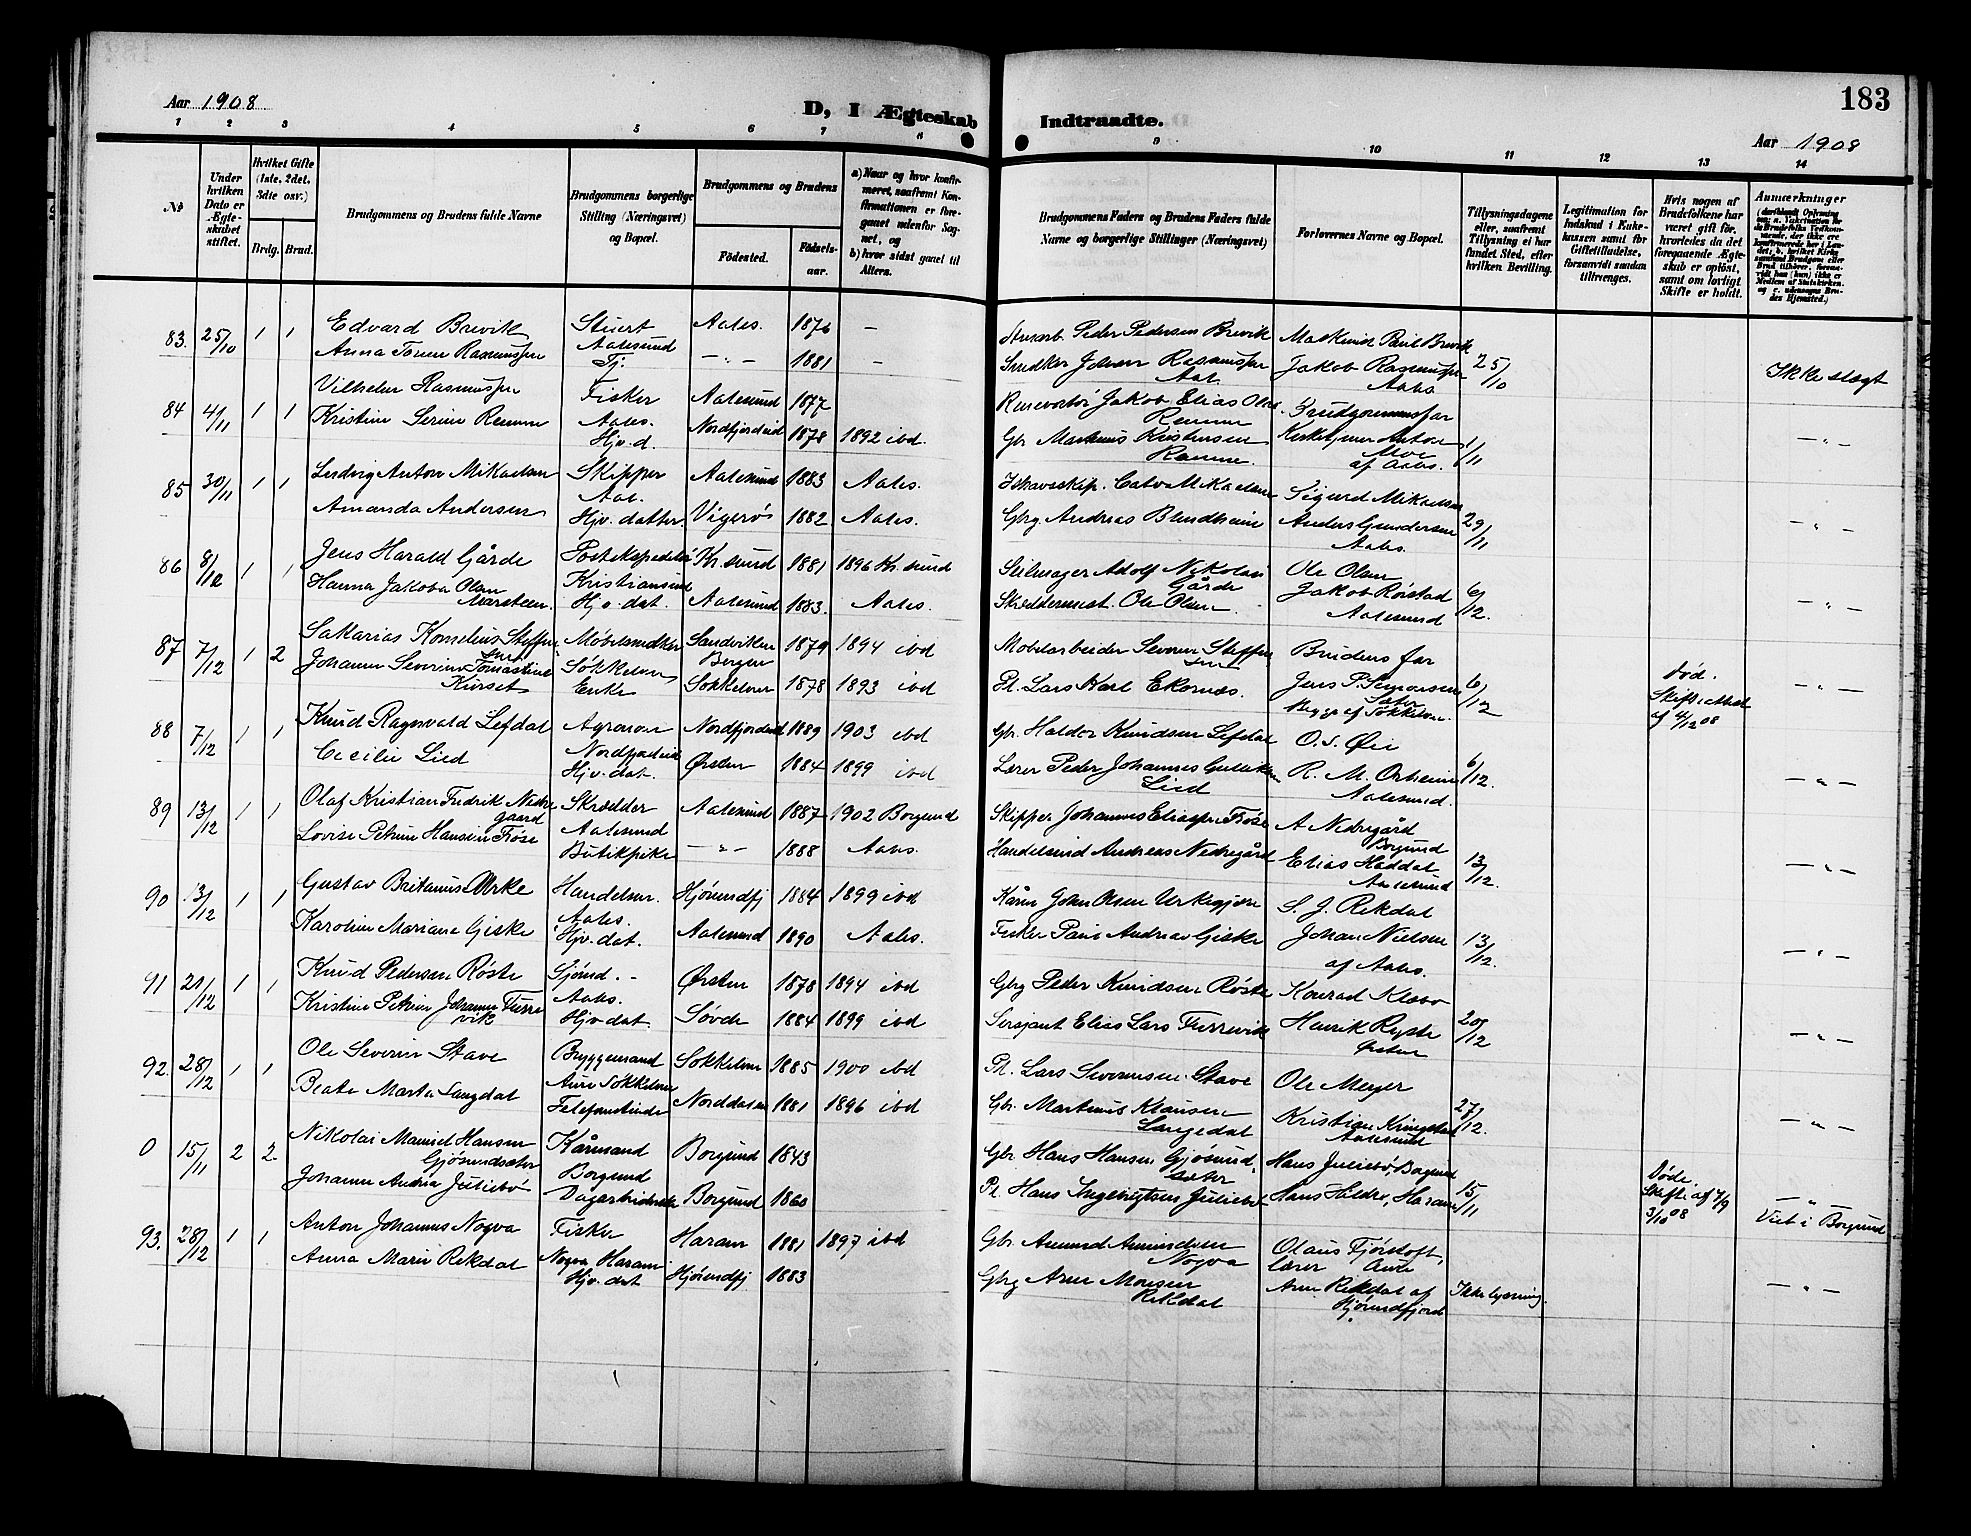 183
Aar 1908
D, I Ægteskab Indtraadte.
Aar 1908
1 2 3 4 5 6 7 8 9 10 11 12 13 14
№
Under hvilken Dato er Ægteskabet stiftet.
Hvilket Gifte (1ste, 2det, 3die osv.)
Brdg. Brud.
Brudgommens og Brudens fulde Navne
Brudgommens borgerlige Stilling (Næringsvei) og Bopæl.
Brudgommens og Brudens
Fødested.
Fødselsaar.
a) Naar og hvor konfirmeret, saafremt Konfirmationen er foregaaet udenfor Sognet, og
b) hvor sidst gaaet til Alters.
Brudgommens Faders og Brudens Faders fulde Navne og borgerlige Stillinger (Næringsvei)
Forlovernes Navne og Bopæl.
Tillysningsdagene eller, saafremt Tillysning ei har fundet Sted, efter hvilken Bevilling.
Legitimation for Indskud i Enkekassen samt for Giftetilladelse, forsaavidt saadan tiltrænges.
Hvis nogen af Brudefolkene har været gift før, hvorledes da det foregaaende Ægteskab er opløst, samt om lovligt Skifte er holdt.
Anmærkninger
83. 25/10 1 1 Edvard Brevik Stuert Aales. 1876 — Peder Pedersen Brevik Maskinist Paul Brevik
Anna Rasmussen Aalesund Tj. —"— 1881 — Snedker Johan Rasmussen Aal. Jakob Rasmussen Aales. 25/10 Ikke slægt
84 4/11 1 1 Vilhelm Rasmussen Fisker Aalesund 1877 Jakob Elias Remme Brudgommens far
Kristine Serine Remme Aales. Hjv.d. Nordfjordeid 1878 1892 ibd. Gbr. Martinus Kristensen Remme Anton Moe af Aales. 1/11 —"—
85 30/11 1 1 Ludvig Anton Mikaelsen Skipper Aalesund 1883 Aales. Ishavsskip. Mikaelsen Sigurd Mikaelsen
Amanda Andersen Aal. Hjv.datter Vigerø 1882 Aales. Gbrg Andreas Blindheim Anders Gundersen Aales. 29/11 —"—
86 8/12 1 1 Jens Harald Gårde Postekspeditør Kr.sund 1881 1896 Kr.sund Seilmager Adolf Nikolai Gårde Ole Olsen
Hanna Jakoba Olsen Marsteen Kristiansund Hjv.dat. Aalesund 1883. Aales. Skreddermest. Ole Olsen Jakob Rørstad Aalesund 6/12. —"—
87 7/12 1 2 Sakarias Kornelius Steffensen Møbelsnedker Sandviken Bergen 1879 1894 ibd Møbelarbeider Severin Steffensen Brudens far
Johanne Severine Tomastine Kurset Søkkelven Enke Søkkelven 1878 1893 ibd Pl. Lars Karl Ekornæs. Jens P. Simonsen Begge af Søkkelven 6/12 død. Skifteattest af 4/12 08 —"—
88 7/12 1 1 Knud Ragnvald Lefdal Agronom Nordfjordeid 1889 1903 ibd Gbr. Haldor Knudsen Lefdal O. S. Øie
Cecilie Lied Nordfjordeid Hjv.dat. Ørsten 1884 1899 ibd Lærer Peder Johannes Lied R. M. Orheim Aalesund. 6/12. —"—
89 13/12 1 1 Olaf Kristian Fredrik Nedregaard Skrædder Aalesund 1887 1902 Borgund Skipper Johannes Eliassen Frøse A Nedregård Borgund
Lovise Petrine Hansine Frøse Aalesund Butikpike —"— 1888 Aales. Handelsmd Andreas Nedregård Elias Haddal Aalesund 13/12. —"—
90 13/12 1 1 Gustav Britanus Urke Handelsm. Hjørundfj 1884 1899 ibd Kårm John Olsen Urkegjøre S. J. Rekdal
Karoline Mariane Giske Aales. Hjv.dat. Aalesund 1890 Aales. Fisker Paul Andreas Giske Johan Nielsen af Aales. 13/12. —"—
91 21/12 1 1 Knud Pedersen Røste Sjömd. — Ørsten 1878 1894 ibd Gbrg Peder Knudsen Røste Konrad Klebo
Kristine Petrine Johanne Furrevik Aales. Hjv.dat. Søvde 1884 1899 ibd Sersjant Elias Lars Furrevik Henrik Ryste Ørsten 20/12 —"—
92. 28/12 1 1 Ole Severin Stave Bryggemand Søkkelven 1885 1900 ibd Pl. Lars Severinsen Stave Ole Meyer
Beate Marta Langdal Aure Søkkelven Telefonistinde Norddalen 1881 1896 ibd Gbr. Martinus Klausen Langedal Kristian Kringstad Aalesund 27/12. —"—
0 15/11 2 2 Nikolai Hansen Gjøsundsæter Kårmand Borgund 1843 Gbr. Hans Hansen Gjøsundsæter Hans Juliebø, Borgund
Johanne Andrea Juliebø Borgund Dagarbeiderske Borgund 1860 Pl. Hans Ingebrigtsen Juliebø Hans Hildre, Haram 15/11 Døde. Skifte af 4/9 3/10 08 —"— Viet i Borgund
93. 28/12 1 1 Anton Johannes Nogva Fisker Haram 1881 1897 ibd Gbr Amund Amundsen Nogva Olaus Fjørtoft, lærer Aure
Anna Marie Rekdal Nogva Haram Hjv.dat Hjørundfj 1883 Gbrg Arne Monsen Rekdal Arne Rekdal af Hjørundfjord Ikke lysning. —"—